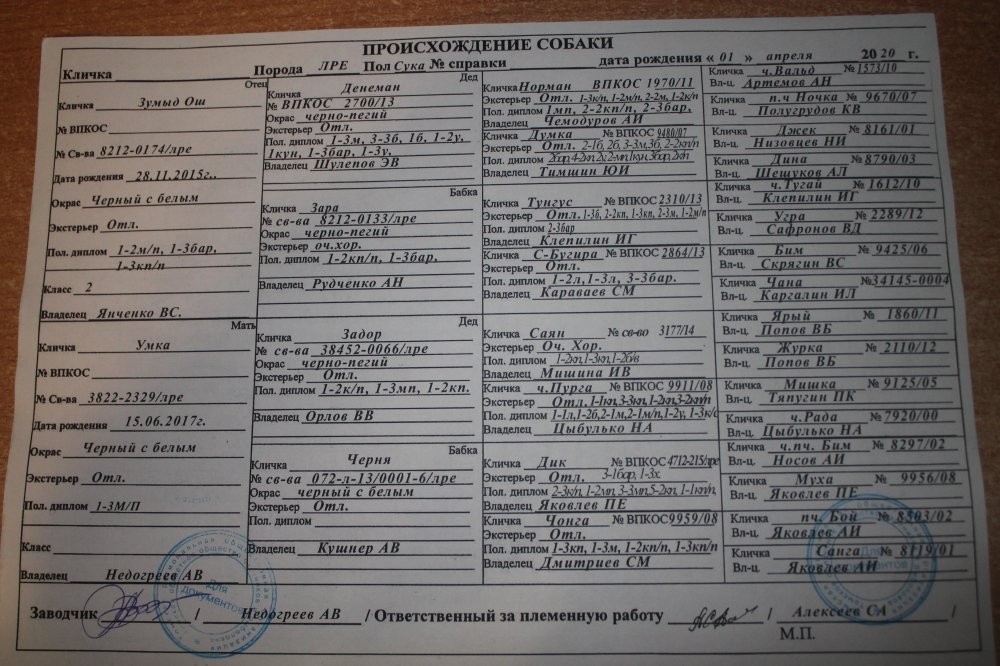 ПРОИСХОЖДЕНИЕ СОБАКИ
Кличка Порода ЛРЕ Пол Сука № справки дата рождения « 01 » апреля 2020 г.
Отец
Кличка Зумыд Ош
№ ВПКОС
№ Св-ва 8212-0174/лре
Дата рождения 28.11.2015г..
Окрас Черный с белым
Экстерьер Отл.
Пол. диплом 1-2м/п, 1-3бар,
1-3кп/п
Класс 2
Владелец Янченко ВС.
Мать
Кличка Умка
№ ВПКОС
№ Св-ва 3822-2329/лре
Дата рождения 15.06.2017г.
Окрас Черный с белым
Экстерьер Отл.
Пол. диплом 1-3М/П
Класс
Владелец Недогреев АВ
Дед
Кличка Денеман
№ ВПКОС 2700/13
Окрас черно-пегий
Экстерьер Отл.
Пол. диплом 1-3м, 3-3б, 1б, 1-2у,
1куп, 1-3бар, 1-3у,
Владелец Шулепов ЭВ
Бабка
Кличка Зара
№ св-ва 8212-0133/лре
Окрас черно-пегий
Экстерьер оч.хор.
Пол. диплом 1-2кп/п, 1-3бар,
Владелец Рудченко АН
Дед
Кличка Задор
№ св-ва 38452-0066/лре
Окрас черно-пегий
Экстерьер Отл.
Пол. диплом 1-2к/п, 1-3мп, 1-2кп.
Владелец Орлов ВВ
Бабка
Кличка Черня
№ св-ва 072-л-13/0001-6/лре
Окрас черный с белым
Экстерьер Отл.
Пол. диплом
Владелец Кушнер АВ
Кличка Норман ВПКОС 1970/11
Экстерьер Отл. 1-3к/п, 1-2м/п, 2-2м, 1-2к/п
Пол. диплом 1мп, 2-2кп/п, 2-3бар,
Владелец Чемодуров АИ
Кличка Думка № ВПКОС 9480/07
Экстерьер Отл. 2-1б, 2б, 3-3м,3б, 2-2кп/п
Пол. диплом
Владелец Тимшин ЮИ
Кличка Тунгус № ВПКОС 2310/13
Экстерьер Отл. 1-3б, 2-2кп, 1-3кп, 2-3м, 1-2м/п
Пол. диплом 2-3бар
Владелец Клепилин ИГ
Кличка С-Бугира № ВПКОС 2864/13
Экстерьер Отл.
Пол. диплом 1-2л,1-3л, 3-3бар.
Владелец Караваев СМ
Кличка Саян № св-во 3177/14
Экстерьер Оч. Хор.
Пол. диплом 1-2кп,1-3кп,1-2б/в
Владелец Мишина ИВ
Кличка ч.Пурга № ВПКОС 9911/08
Экстерьер Отл. 1-1кп,3-3кп, 1-2кп,3-2кп/п
Пол. диплом 1-1л,1-2б,2-1м,2-1м/п,1-2у, 1-3к/с
Владелец Цыбулько НА
Кличка Дик № ВПКОС 4712-215/лре
Экстерьер Отл. 3-1бар, 1-3х.
Пол. диплом 2-3к/п, 1-2мп, 3-3мп,5-2кп, 1-1кп/п,
Владелец Яковлев ПЕ
Кличка Чонга № ВПКОС 9959/08
Экстерьер Отл.
Пол. диплом 1-3кп, 1-3м, 1-2кп/п, 1-3кп/п
Владелец Дмитриев СМ
Кличка ч.Вальд № 1573/10
Вл-ц. Артемов АН
Кличка п.ч Ночка № 9670/07
Вл-ц. Полугрудов КВ
Кличка Джек № 8161/01
Вл-ц. Низовцев НИ
Кличка Дина № 8790/03
Вл-ц. Шешуков АЛ
Кличка ч.Тугай № 1612/10
Вл-ц. Клепилин ИГ
Кличка Угра № 2289/12
Вл-ц. Сафронов ВД
Кличка Бим № 9425/06
Вл-ц. Скрягин ВС
Кличка Чана №34145-0004
Вл-ц. Каргалин ИЛ
Кличка Ярый № 1860/11
Вл-ц. Попов ВБ
Кличка Журка № 2110/12
Вл-ц. Попов ВБ
Кличка Мишка № 9125/05
Вл-ц. Тяпугин ПК
Кличка ч.Рада № 7920/00
Вл-ц. Цыбулько НА
Кличка ч.пч. Бим № 8297/02
Вл-ц. Носов АИ
Кличка Муха № 9956/08
Вл-ц. Яковлев ПЕ
Кличка пч. Бой № 8503/02
Вл-ц. Яковлев АИ
Кличка Санга № 8119/01
Вл-ц. Яковлев АИ
Заводчик / Недогреев АВ / Ответственный за племенную работу / Алексеев СА /
М.П.
Для
документов
Для
документов